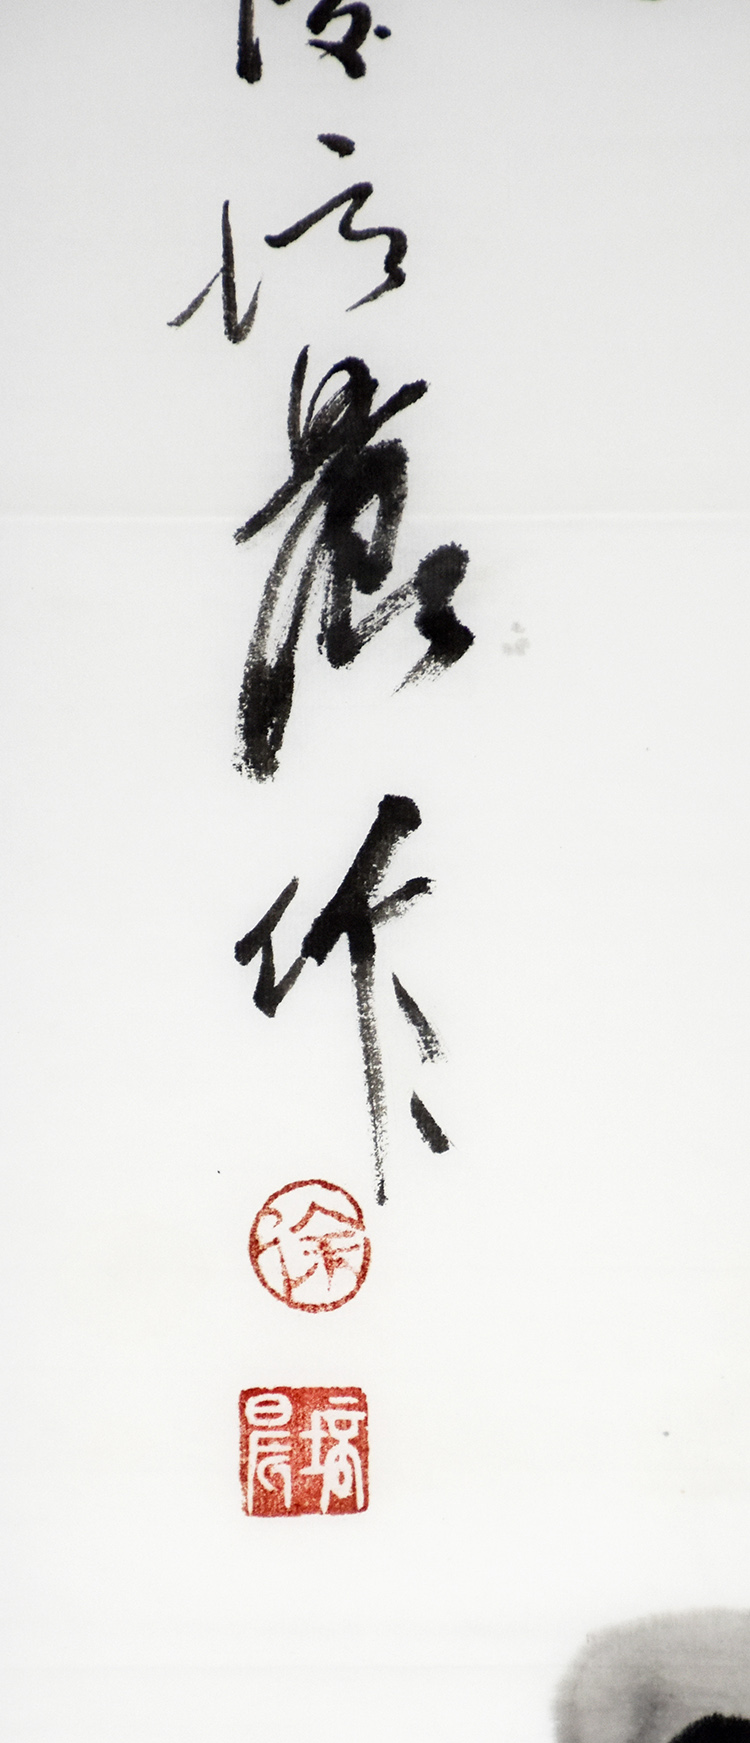 培晨作
徐
培晨